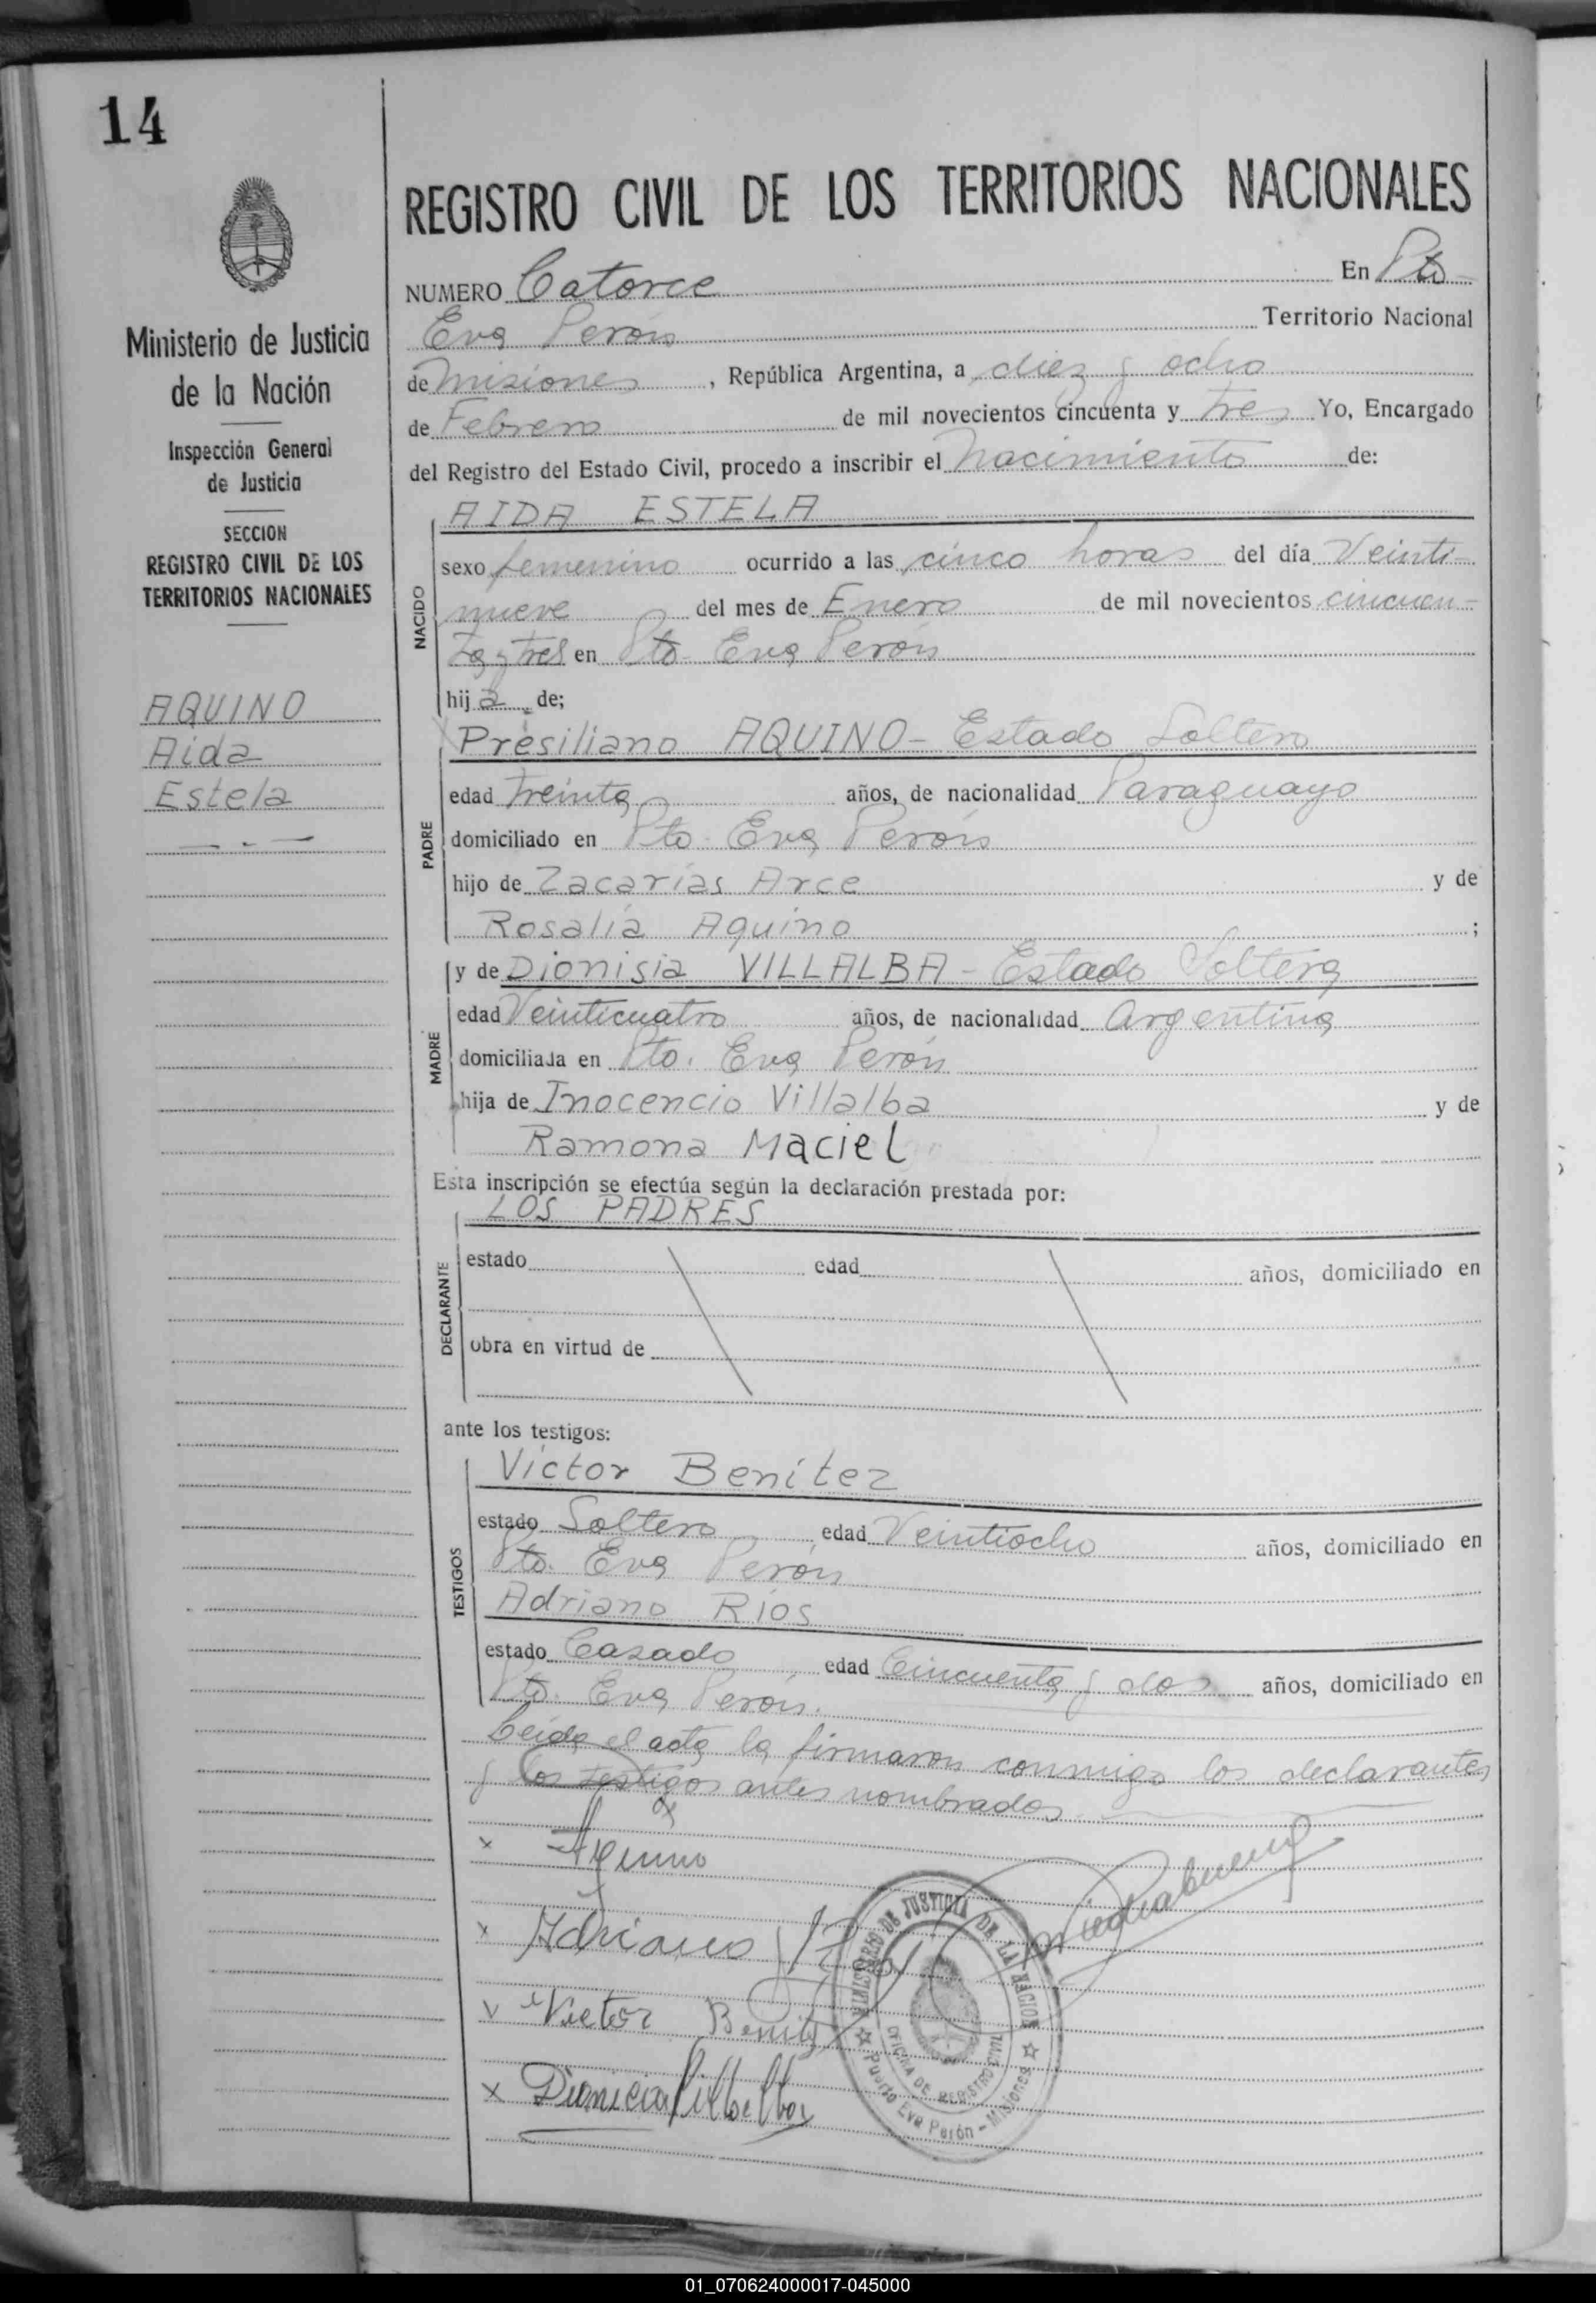 14
Ministerio de Justicia
de la Nación
Inspección General
de Justicia
SECCION
REGISTRO CIVIL DE LOS
TERRITORIOS NACIONALES
AQUINO
Aida
Estela
REGISTRO CIVIL DE LOS TERRITORIOS NACIONALES
NUMERO Catorce En Pto
Eva Perón Territorio Nacional
de Misiones, República Argentina, a diez y ocho
de Febrero de mil novecientos cincuenta y tres Yo, Encargado
del Registro del Estado Civil, procedo a inscribir el Nacimiento de:
NACIDO
AIDA ESTELA
sexo femenino ocurrido a las cinco horas del día Veinti-
nueve del mes de Enero de mil novecientos cincuen-
ta y tres en Pto. Eva Perón
hija de;
PADRE
Presiliano AQUINO - Estado Soltero
edad treinta años, de nacionalidad Paraguayo
domiciliado en Pto. Eva Perón
hijo de Zacarías Arce y de
Rosalía Aquino;
MADRE
y de Dionisia VILLALBA - Estado Soltera
edad Veinticuatro años, de nacionalidad Argentina
domiciliada en Pto. Eva Perón
hija de Inocencio Villalba y de
Ramona Maciel
Esta inscripción se efectúa según la declaración prestada por:
DECLARANTE
LOS PADRES
estado edad años, domiciliado en
obra en virtud de
ante los testigos:
TESTIGOS
Víctor Benítez
estado Soltero edad Veintiocho años, domiciliado en
Pto. Eva Perón
Adriano Ríos
estado Casado edad Cincuenta y dos años, domiciliado en
Pto. Eva Perón.
Leída el acta la firmaron conmigo los declarantes
y los testigos antes nombrados
x Aquino
x Adriano
v Victor Benitez
x Dionicia Villalba
MINISTERIO DE JUSTICIA DE LA NACION
OFICINA DE REGISTRO CIVIL
Puerto Eva Perón - Misiones
01_070624000017-045000